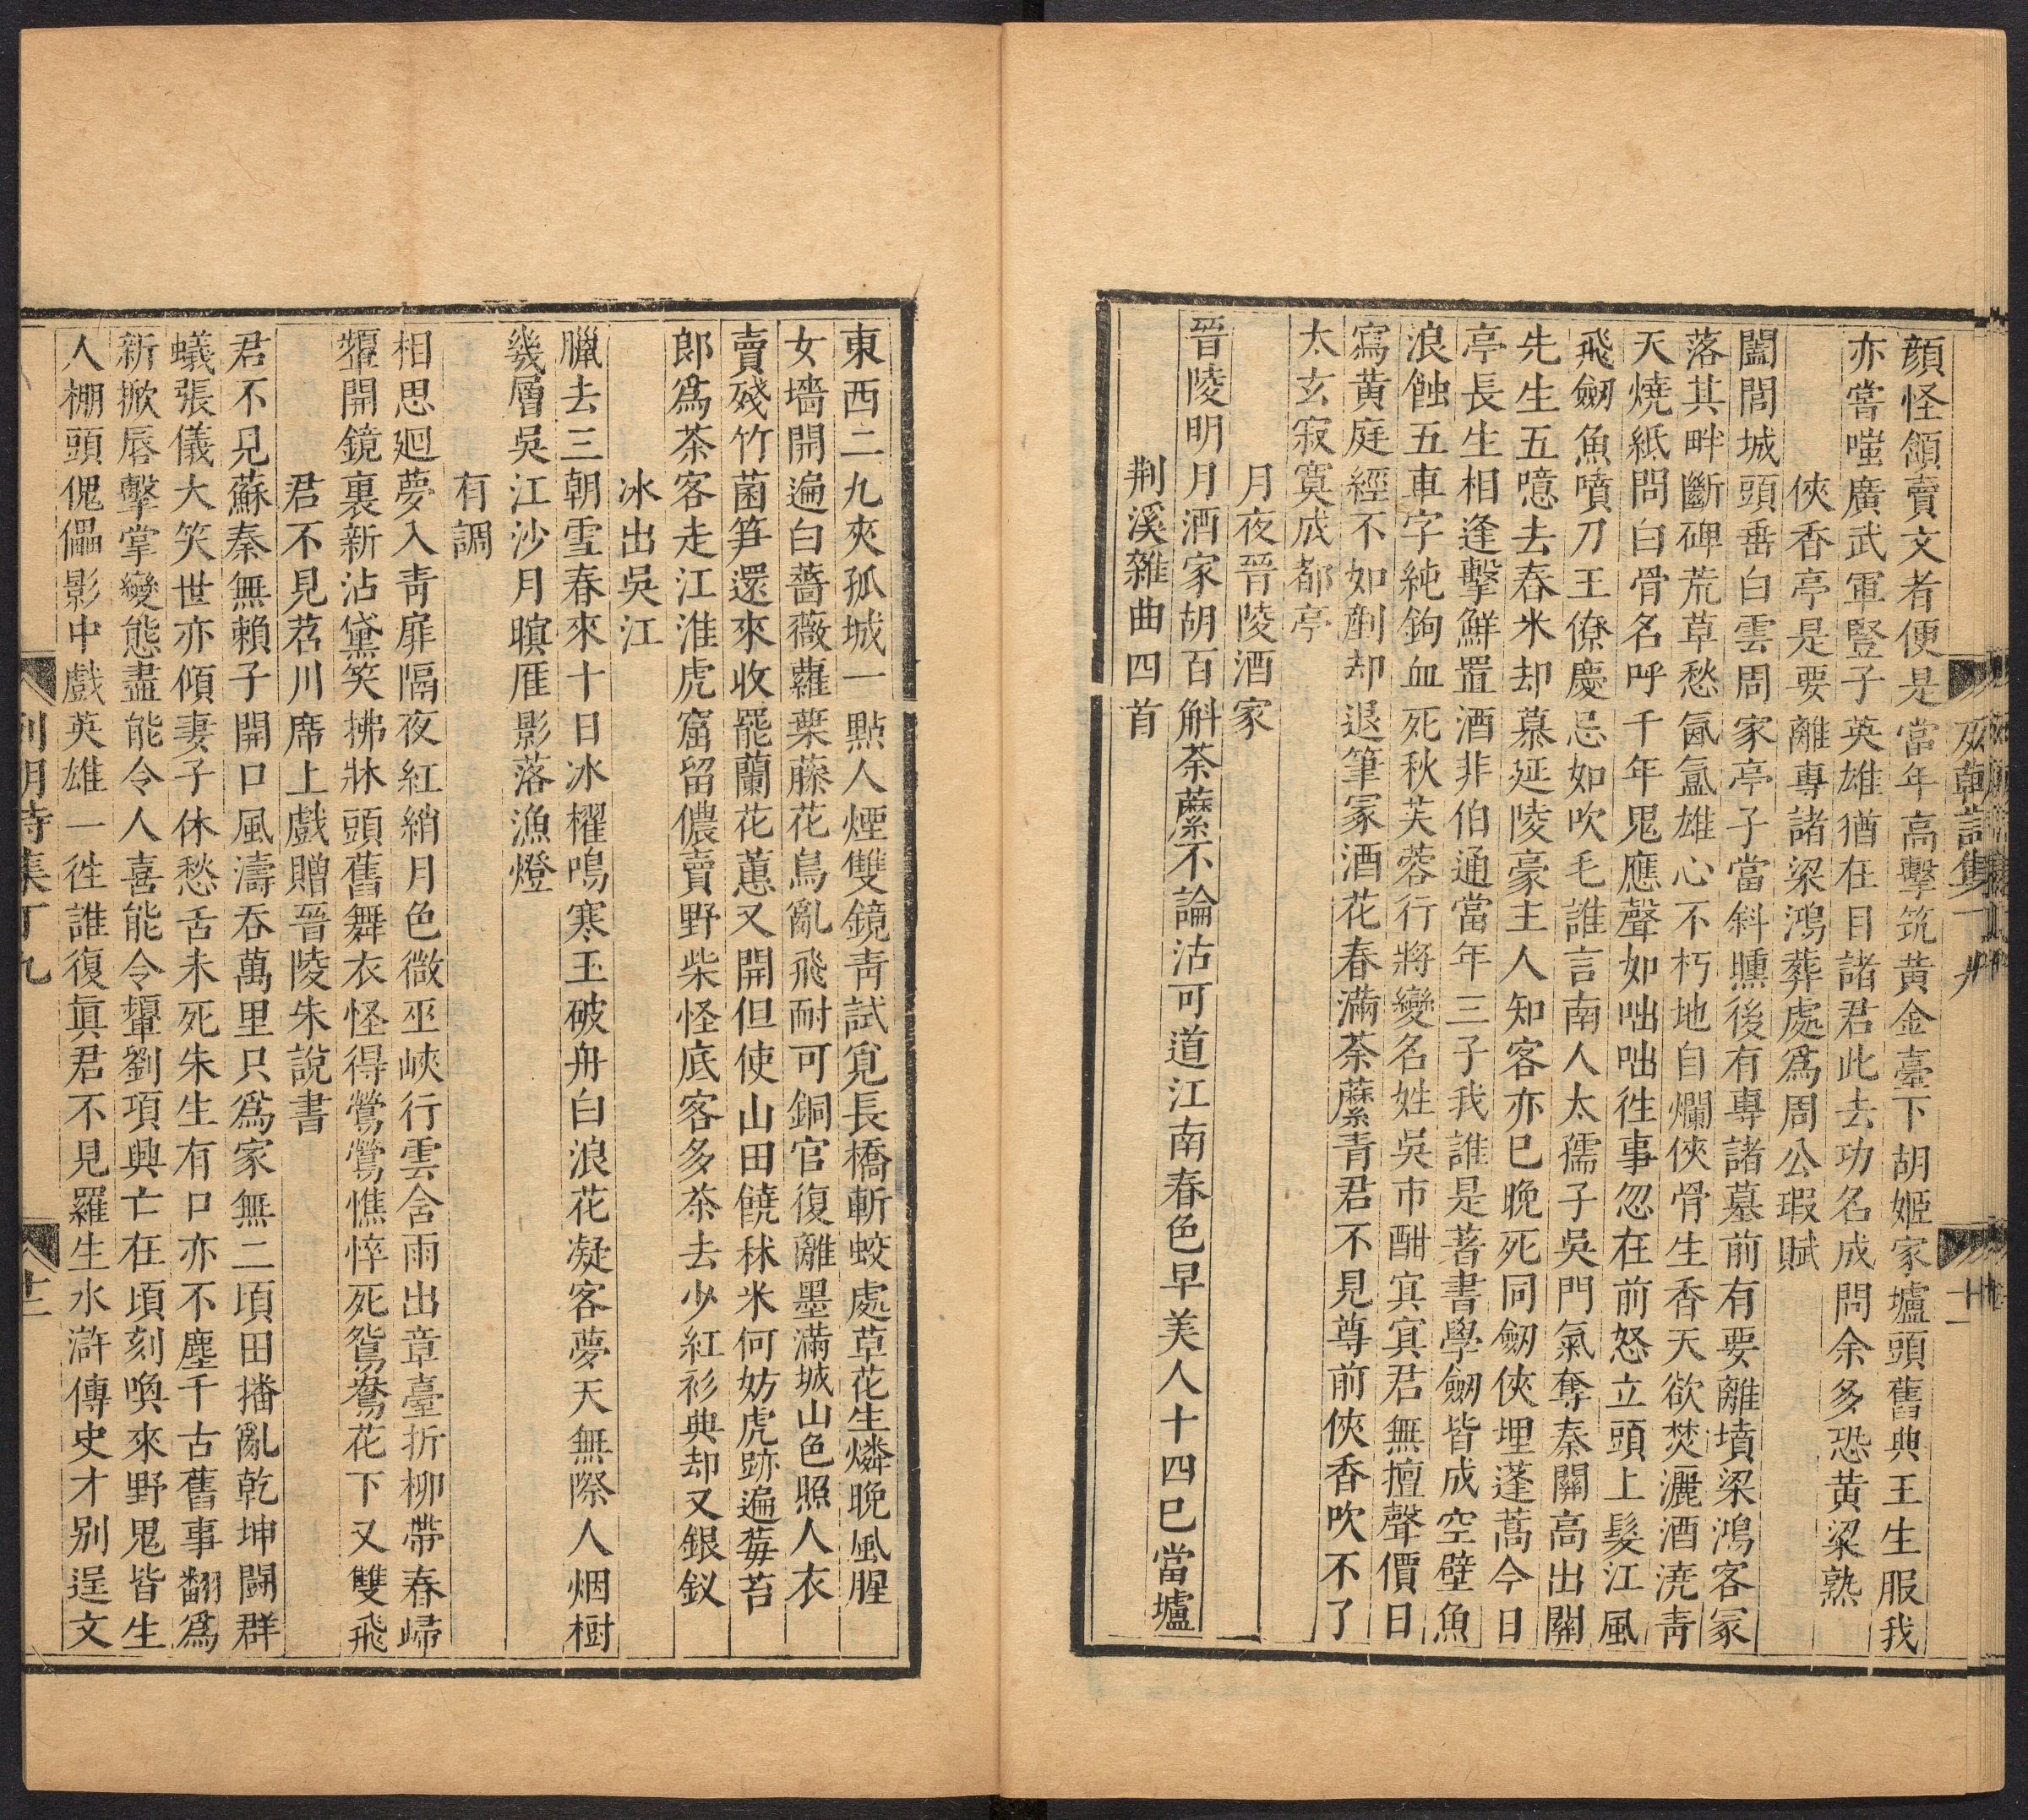 顔怪領賣文者便是當年高擊筑黃金臺下胡姬家壚頭舊典王生服我
亦嘗嗤廣武軍豎子英雄猶在目諸君此去功名成問余多恐黃粱熟
俠香亭是要離專諸梁鴻葬處爲周公瑕賦
闔閭城頭垂白雲周家亭子當斜曛後有專諸墓前有要離墳梁鴻客冢
落其畔斷碑荒草愁氤氳雄心不朽地自爛俠骨生香天欲焚灑酒澆靑
天燒紙問白骨名呼千年鬼應聲如咄咄徃事忽在前怒立頭上髮江風
飛劒魚噴刀王僚慶忌如吹毛誰言南人太孺子吳門氣奪秦關高出關
先生五噫去舂米却慕延陵豪主人知客亦巳晚死同劒俠埋蓬蒿今日
亭長生相逢擊鮮置酒非伯通當年三子我誰是著書學劒皆成空壁魚
浪蝕五車字純鉤血死秋芙蓉行將變名姓吳市酣㝠㝠君無擅聲價日
寫黃庭經不如削却退筆冢酒花春滿荼蘼青君不見尊前俠香吹不了
太玄寂寞成都亭
月夜晉陵酒家
晉陵明月酒家胡百斛荼蘼不論沽可道江南春色早美人十四巳當壚
荆溪雜曲四首
東西二九夾孤城一點人煙雙鏡靑試覓長橋斬蛟處草花生燐晚風腥
女墻開遍白薔薇蘿葉藤花鳥亂飛耐可銅官復離墨滿城山色照人衣
賣殘竹菌笋還來收罷蘭花蕙又開但使山田饒秫米何妨虎跡遍莓苔
郎爲茶客走江淮虎窟留儂賣野柴怪底客多茶去少紅衫典却又銀釵
冰出吳江
臘去三朝雪春來十日冰櫂鳴寒玉破舟白浪花凝客夢天無際人烟樹
幾層吳江沙月暝雁影落漁燈
有調
相思廻夢入靑扉隔夜紅綃月色微巫峽行雲含雨出章臺折柳帶春歸
顰開鏡裏新沾黛笑拂牀頭舊舞衣怪得鶯鶯憔悴死鴛鴦花下又雙飛
君不見苕川席上戲贈晉陵朱說書
君不見蘇秦無賴子開口風濤吞萬里只爲家無二頃田播亂乾坤鬪群
蟻張儀大笑世亦傾妻子休愁舌未死朱生有口亦不塵千古舊事翻爲
新掀唇擊掌變態盡能令人喜能令顰劉項興亡在頃刻喚來野鬼皆生
人棚頭傀儡影中戲英雄一徃誰復眞君不見羅生水滸傳史才別逞文